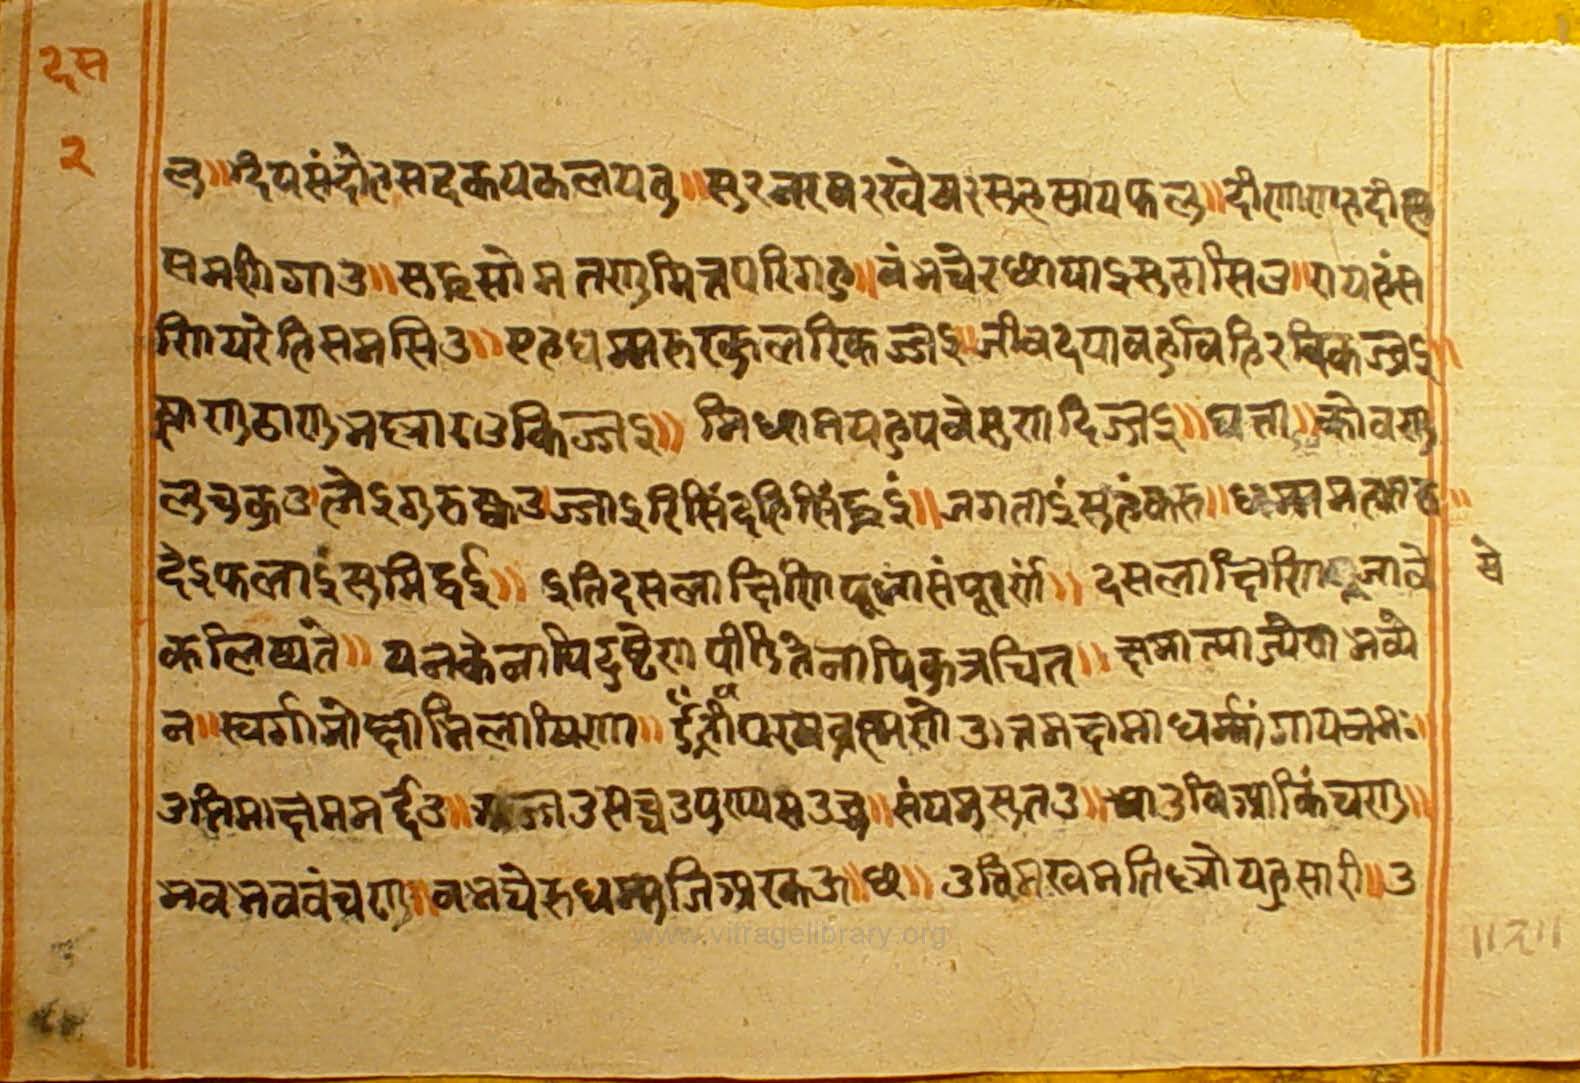 दस
२
लु॥ दियसंदोहसद्दकयकलयलु॥ सुरनरवरखेयरसुहसयफलु॥ दीणाणाह दीह
समणिग्गउ॥ सुद्धसोमतणुमित्तपरिगहु॥ बंभचेरछायाइसुहासिउ॥ रायहंस
णियरेहिसमासिउ॥ एहुधम्मरुक्खुलाकिज्जइ॥ जीवदयावयणहिरक्खिज्जइ॥
झाणठाणभल्लारउकिज्जइ॥ मिछामयहुपवेसुणदिज्जइ॥ घत्ता॥ कोवाण
लुचुक्कउ होइगुरुक्कउ जाइरिसिंदहिसिट्ठइं॥ जगताइंसुहंकरु॥ धम्ममहातरु॥
देइफलाइंसुमिट्ठइं॥ इतिदसलाक्षिणिपूजासंपूर्ण॥ दसलाक्षिणिपूजावि
से
कलिख्यते॥ येनकेनापिदुष्टेण पीडितेनापिकुत्रचित्॥ क्षमात्याज्यानभव्ये
न॥ स्वर्गमोक्षाभिलाषिणा॥ उँह्रीं परमब्रह्मणे उत्तमक्षमाधर्म्मांगायनमः॥
उत्तिमक्षममद्दउ॥ अज्जउसच्चउपुणसउच्च॥ संयमुसुतउ॥ चाउविआकिंचणु॥
भवभयवंचणु॥ बंभचेरुधम्मुजिअरकऊ॥ छ॥ उत्तिमखमतिल्लोयहसारी॥ उ
॥२॥
www.vitragelibrary.org